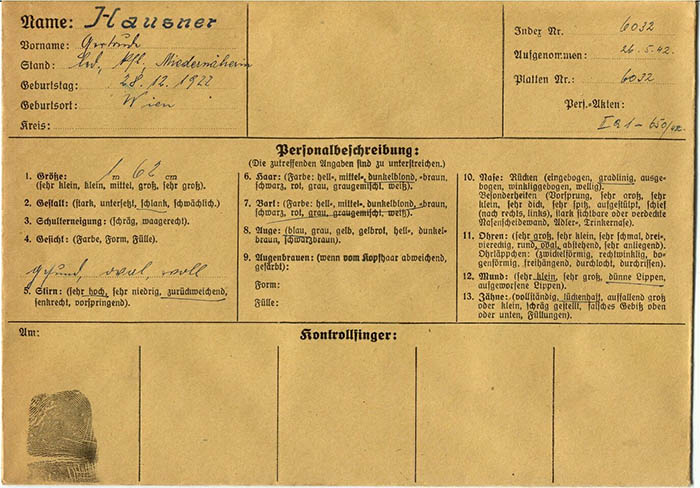 Name: Hausner
Vorname: Gertrude
Stand: led.
Geburtstag: 28.12.1922
Geburtsort: Wien
Kreis:
Index Nr. 6032
Aufgenommen: 26.5.42.
Platten Nr.: 6032
Pers.-Akten:
Personalbeschreibung:
(Die zutreffenden Angaben sind zu unterstreichen.)
1. Größe: 1 m 62 cm
(sehr klein, klein, mittel, groß, sehr groß).
2. Gestalt: (stark, untersetzt, schlank, schwächlich.)
3. Schulterneigung: (schräg, waagerecht.)
4. Gesicht: (Farbe, Form, Fülle).
gesund, oval, voll
5. Stirn: (sehr hoch, sehr niedrig, zurückweichend,
senkrecht, vorspringend).
6. Haar: (Farbe: hell-, mittel-, dunkelblond, -braun,
schwarz, rot, grau, graugemischt, weiß).
7. Bart: (Farbe: hell-, mittel-, dunkelblond, -braun,
schwarz, rot, grau, graugemischt, weiß).
8. Auge: (blau, grau, gelb, gelbrot, hell-, dunkel-
braun, schwarzbraun).
9. Augenbrauen: (wenn vom Kopfhaar abweichend,
gefärbt):
Form:
Fülle:
10. Nase: Rücken (eingebogen, gradlinig, ausge-
bogen, winkliggebogen, wellig).
Besonderheiten (Vorsprung, sehr groß, sehr
klein, sehr dick, sehr spitz, aufgestülpt, schief
(nach rechts, links), stark sichtbare oder verdeckte
Nasenscheidewand, Adler-, Trinkernase).
11. Ohren: (sehr groß, sehr klein, sehr schmal, drei-,
viereckig, rund, oval, abstehend, sehr anliegend).
Ohrläppchen: (zwickelförmig, rechtwinklig, bo-
genförmig, freihängend, durchlocht, durchrissen).
12. Mund: (sehr klein, sehr groß, dünne Lippen,
aufgeworfene Lippen).
13. Zähne: (vollständig, lückenhaft, auffallend groß
oder klein, schräg gestellt, falsches Gebiß oben
oder unten, Füllungen).
Am:
Kontrollfinger: